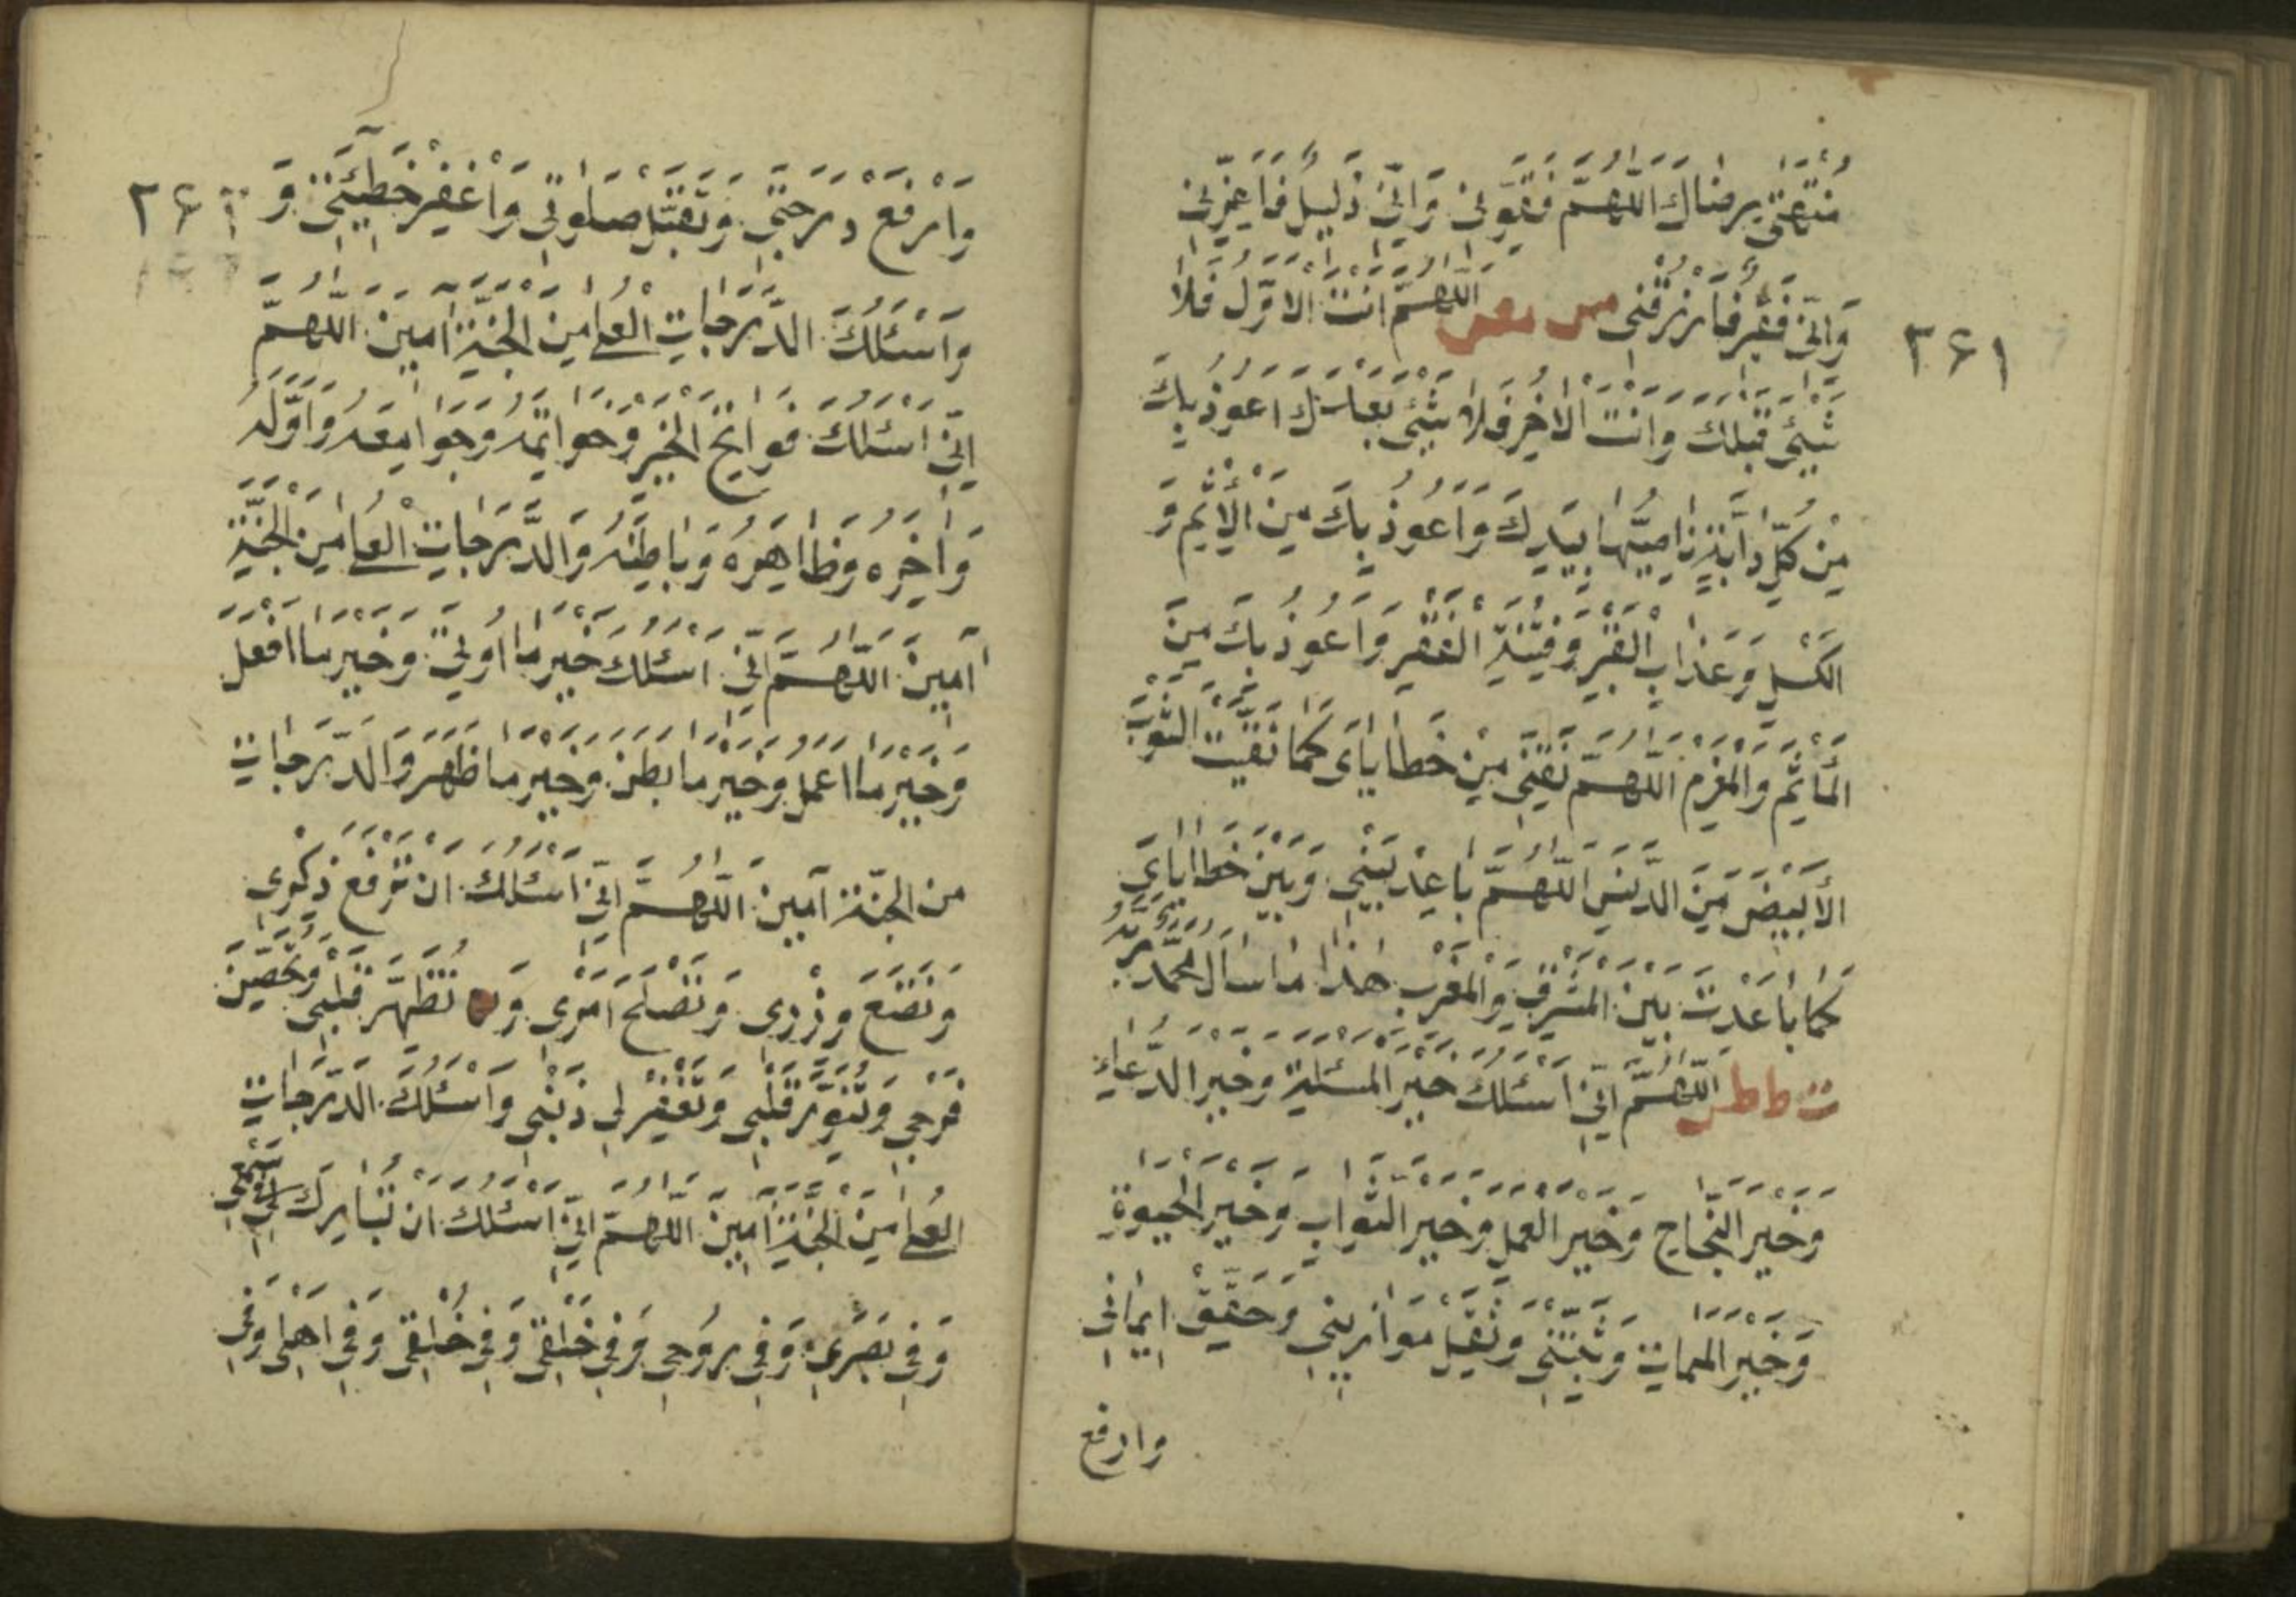 ٣٤١
مُنْتَهٰى بِرِضَاكَ اَللّٰهُمَّ فَقَوِّنِى وَاِنِّى ذَلِيلٌ فَاَعِزَّنِى
وَاِنِّى فَقِيرٌ فَارْزُقْنِى مس مص اَللّٰهُمَّ اَنْتَ الْاَوَّلُ فَلَا
شَيْئَ قَبْلَكَ وَاَنْتَ الْاٰخِرُ فَلَا شَيْئَ بَعْدَكَ اَعُوذُ بِكَ
مِنْ كُلِّ دَابَّةٍ نَاصِيَتُهَا بِيَدِكَ وَاَعُوذُ بِكَ مِنَ الْاِثْمِ وَ
الْكَسَلِ وَعَذَابِ الْقَبْرِ وَفِتْنَةِ الْفَقْرِ وَاَعُوذُ بِكَ مِنَ
الْمَأْثَمِ وَالْمَغْرَمِ اَللّٰهُمَّ نَقِّنِى مِنْ خَطَايَاىَ كَمَا نَقَّيْتَ الثَّوْبَ
الْاَبْيَضَ مِنَ الدَّنَسِ اَللّٰهُمَّ بَاعِدْ بَيْنِى وَبَيْنَ خَطَايَاىَ
كَمَا بَاعَدْتَ بَيْنَ الْمَشْرِقِ وَالْمَغْرِبِ هٰذَا مَا سَأَلَ مُحَمَّدٌ رَبَّهُ
ط طس اَللّٰهُمَّ اِنِّى اَسْئَلُكَ خَيْرَ الْمَسْئَلَةِ وَخَيْرَ الدُّعَاءِ
وَخَيْرَ النَّجَاحِ وَخَيْرَ الْعَمَلِ وَخَيْرَ الثَّوَابِ وَخَيْرَ الْحَيٰوةِ
وَخَيْرَ الْمَمَاتِ وَثَبِّتْنِى وَثَقِّلْ مَوَازِينِى وَحَقِّقْ اِيمَانِى
وارفع
٣٤٢
وَارْفَعْ دَرَجَتِى وَتَقَبَّلْ صَلٰوتِى وَاغْفِرْ خَطِيئَتِى وَ
وَاَسْئَلُكَ الدَّرَجَاتِ الْعُلٰى مِنَ الْجَنَّةِ اٰمِينَ اَللّٰهُمَّ
اِنِّى اَسْئَلُكَ فَوَاتِحَ الْخَيْرِ وَخَوَاتِمَهُ وَجَوَامِعَهُ وَاَوَّلَهُ
وَاٰخِرَهُ وَظَاهِرَهُ وَبَاطِنَهُ وَالدَّرَجَاتِ الْعُلٰى مِنَ الْجَنَّةِ
اٰمِينَ اَللّٰهُمَّ اِنِّى اَسْئَلُكَ خَيْرَ مَا اُوتِىَ وَخَيْرَ مَا اَفْعَلُ
وَخَيْرَ مَا اَعْمَلُ وَخَيْرَ مَا بَطَنَ وَخَيْرَ مَا ظَهَرَ وَالدَّرَجَاتِ
مِنَ الْجَنَّةِ اٰمِينَ اَللّٰهُمَّ اِنِّى اَسْئَلُكَ اَنْ تَرْفَعَ ذِكْرِى
وَتَضَعَ وِزْرِى وَتُصْلِحَ اَمْرِى وَ تُطَهِّرَ قَلْبِى وَتُحَصِّنَ
فَرْجِى وَتُنَوِّرَ قَلْبِى وَتَغْفِرَ لِى ذَنْبِى وَاَسْئَلُكَ الدَّرَجَاتِ
الْعُلٰى مِنَ الْجَنَّةِ اٰمِينَ اَللّٰهُمَّ اِنِّى اَسْئَلُكَ اَنْ تُبَارِكَ لِى فِى سَمْعِى
وَفِى بَصَرِى وَفِى رُوحِى وَفِى خَلْقِى وَفِى خُلُقِى وَفِى اَهْلِى وَفِى